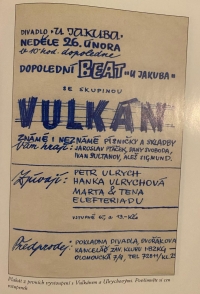 DIVADLO „U JAKUBA"
NEDĚLE 26. ÚNORA
v 10 hod. dopoledne
DOPOLEDNÍ BEAT „U JAKUBA"
SE SKUPINOU
VULKÁN
ZNÁMÉ I NEZNÁMÉ PÍSNIČKY A SKLADBY
Vám hrají: JAROSLAV PTÁČEK, DANY SVOBODA,
IVAN SULTANOV, ALEŠ SIGMUND.
Zpívají: PETR ULRYCH
HANKA ULRYCHOVÁ
MARTA & TENA
ELEFTERIADU
VSTUPNÉ
Předprodej: POKLADNA DIVADLA, DVOŘÁKOVA
KANCELÁŘ ZÁV. KLUBU
OLOMOUCKÁ
Plakát z prvních vystoupení s Vulkánem a Ulrychovými. Povšimněte si cen
vstupenek.